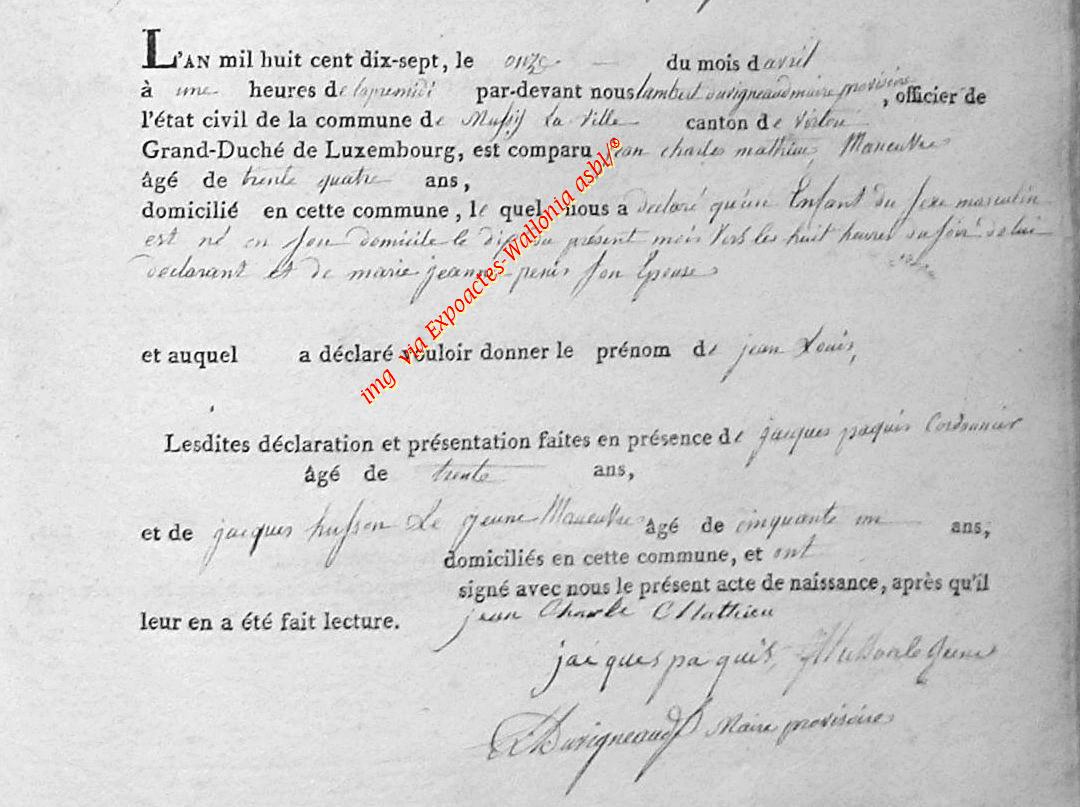 L'AN mil huit cent dix-sept, le onze du mois d'avril
à une heures de lapremidi par-devant nous lambert duvigneaud maire provisoire, officier de
l'état civil de la commune de Mussy La Ville canton de virton
Grand-Duché de Luxembourg, est comparu jean charles mathieu, Maneuvre
âgé de trente quatre ans,
domicilié en cette commune, le quel nous a declaré qu'un Enfant du sexe masculin
est né en son domicile le dix du présent mois vers les huit heures du soir de lui
declarant et de marie jeanne penis son Epouse
et auquel a déclaré vouloir donner le prénom de jean Louis,
Lesdites déclaration et présentation faites en présence de jacques paquis Cordonnier
âgé de trente ans,
et de jacques husson Le jeune Maneuvre âgé de cinquante un ans,
domiciliés en cette commune, et ont
signé avec nous le présent acte de naissance, après qu'il
leur en a été fait lecture. jean Charle Mathieu
jacques paquis, J Husson le jeune
Duvigneaud Maire provisoire
img via Expoactes-Wallonia asbl/®